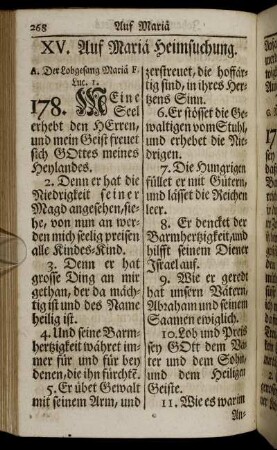 268 Auf Mariä
XV. Auf Mariä Heimsuchung.
A. Der Lobgesang Mariä
Luc. 1.
178. MEine
Seel
erhebt den HErren,
und mein Geist freuet
sich GOttes meines
Heylandes.
2. Denn er hat die
Niedrigkeit seiner
Magd angesehen, sie-
he, von nun an wer-
den mich seelig preisen
alle Kindes-Kind.
3. Denn er hat
grosse Ding an mir
gethan, der da mäch-
tig ist und des Name
heilig ist.
4. Und seine Barm-
hertzigkeit währet im-
mer für und für bey
denen, die ihn fürchtẽ.
5. Er übet Gewalt
mit seinem Arm, und
zerstreuet, die hoffär-
tig sind, in ihres Her-
tzens Sinn.
6. Er stösset die Ge-
waltigen vom Stuhl,
und erhebet die Nie-
drigen.
7. Die Hungrigen
füllet er mit Gütern,
und lässet die Reichen
leer.
8. Er dencket der
Barmhertzigkeit, und
hilfft seinem Diener
Israel auf.
9. Wie er geredt
hat unsern Vätern,
Abraham und seinem
Saamen ewiglich.
10. Lob und Preis
sey GOtt dem Va-
ter und dem Sohn,
und dem Heiligen
Geiste.
11. Wie es war im
An-